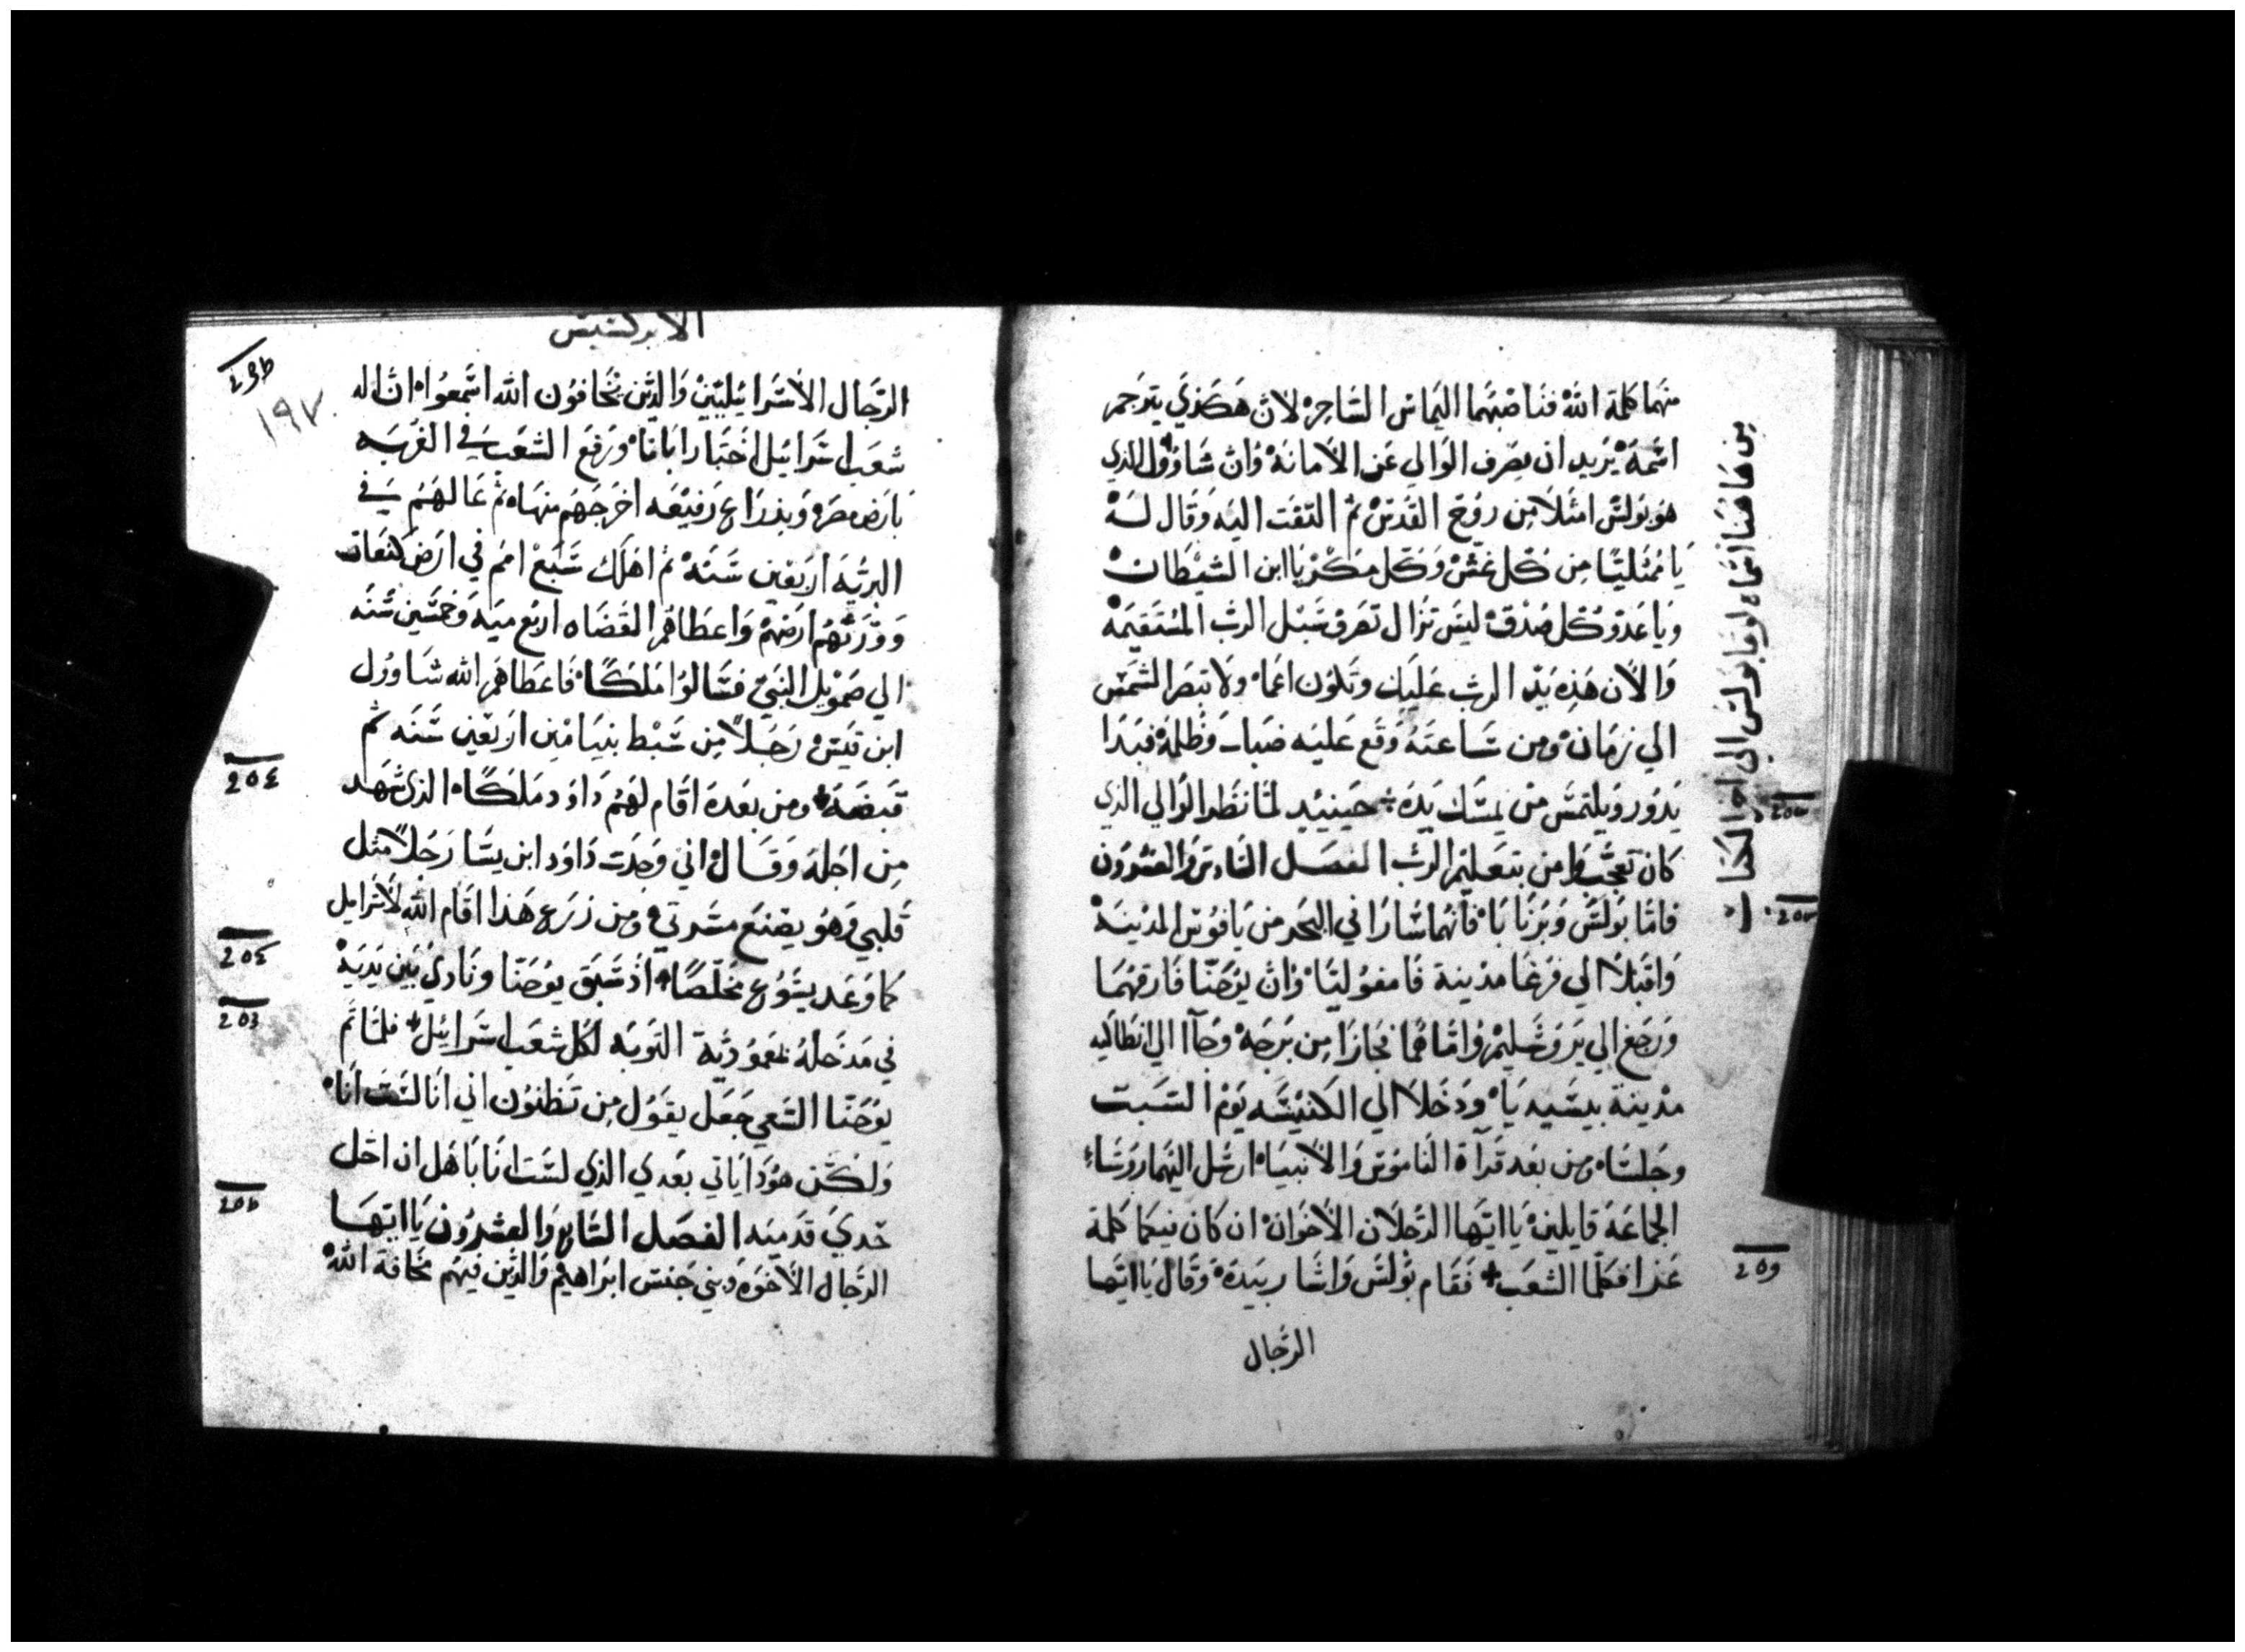 منهما كلمة الله فناصبهما اليماس الساحر لان هكذي يترجم
اسمه يريد ان يصرف الوالي عن الامانة وان شاوول الذي
هو بولس امتلا من روح القدس ثم التفت اليه وقال له
يا ممتليا من كل غش وكل مكر يا ابن الشيطان
ويا عدو كل صدق ليس تزال تعرف سبل الرب المستقيمه
والان هذه يد الرب عليك وتكون اعما ولا تبصر الشمس
الي زمان ومن ساعته وقع عليه ضباب وظلمة فبدا
يدور ويلتمس من يمسك يده حينيد لما نظر الوالي الذي
كان تعجب وامن بتعليم الرب الفصل السادس والعشرون
فاما بولس وبرنابا فانهما سارا في البحر من يافوس المدينة
واقبلا الي فرغا مدينة فامفوليا وان يوحنا فارقهما
ورجع الي يروشليم واما هما فجازا من برجه وجاا الي انطاكيه
مدينة بيسيديا ودخلا الي الكنيسه يوم السبت
وجلسا ومن بعد قرآة الناموس والانبيا ارسل اليهما روساء
الجماعة قايلين يا ايها الرجلان الاخوان ان كان فيكما كلمة
عزا فكلما الشعب فقام بولس واشار بيده وقال يا ايها
الرجال
من هاهنا انحاء لوقا بولس الي اخر الكتاب
الابركسيس
١٩٧
الرجال الاسرائيليين والذين يخافون الله اسمعوا ان اله
شعب اسرائيل اختار ابانا ورفع الشعب في الغربه
بارض مصر وبذراع رفيعه اخرجهم منها ثم عالهم في
البريه اربعين سنه ثم اهلك سبع امم في ارض كنعان
وورثهم ارضهم واعطاهم القضاه اربع ميه وخمسين سنه
الي صمويل النبي فسالوا ملكا فاعطاهم الله شاوول
ابن قيس رجلا من سبط بنيامين اربعين سنه ثم
قبضه ومن بعده اقام لهم داود ملكا الذي شهد
من اجله وقال اني وجدت داود ابن يسا رجلا مثل
قلبي وهو يصنع مسرتي ومن زرع هذا اقام الله لاسرايل
كما وعد يسوع مخلصا اذ سبق يوحنا ونادي بين يديه
في مدخله بمعمودية التوبه لكل شعب اسرائيل فلما تم
يوحنا السعي جعل يقول من تظنون اني انا لست انا
ولكن هوذا ياتي بعدي الذي لست انا باهل ان احل
حدي قدميه الفصل السابع والعشرون يا ايها
الرجال الاخوه وبني جنس ابراهيم والذين فيهم مخافة الله